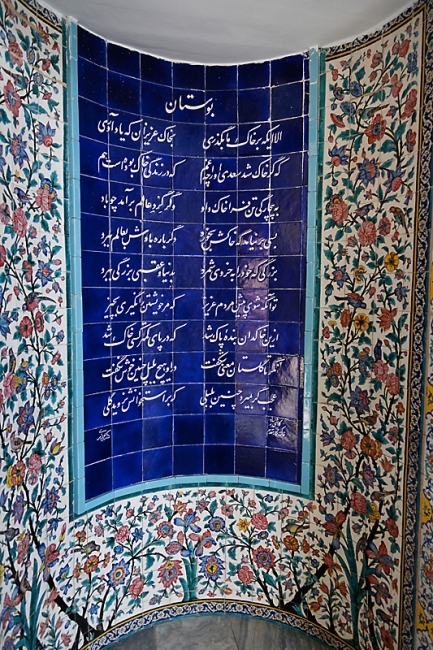 بوستان
الا ایکه بر خاک ما بگذری بخاک عزیزان که یاد آوری
که گر خاک شد سعدی او را چه غم که در زندگی خاک بودست هم
به بیچارگی تن فرا خاک داد وگر گرد عالم برآمد چو باد
بسی برنیاید که خاکش خورد دگر باره بادش بعالم برد
بزرگی که خود را بخردی شمرد بدنیا و عقبی بزرگی ببرد
تو آنگه شوی پیش مردم عزیز که مر خویشتن را نگیری بچیز
ازین خاکدان بنده پاک شد که در پای کمتر کسی خاک شد
نگر تا گلستان معنی شکفت در او هیچ بلبل چنین خوش نگفت
عجب گر بمیرد چنین بلبلی که بر استخوانش نروید گلی